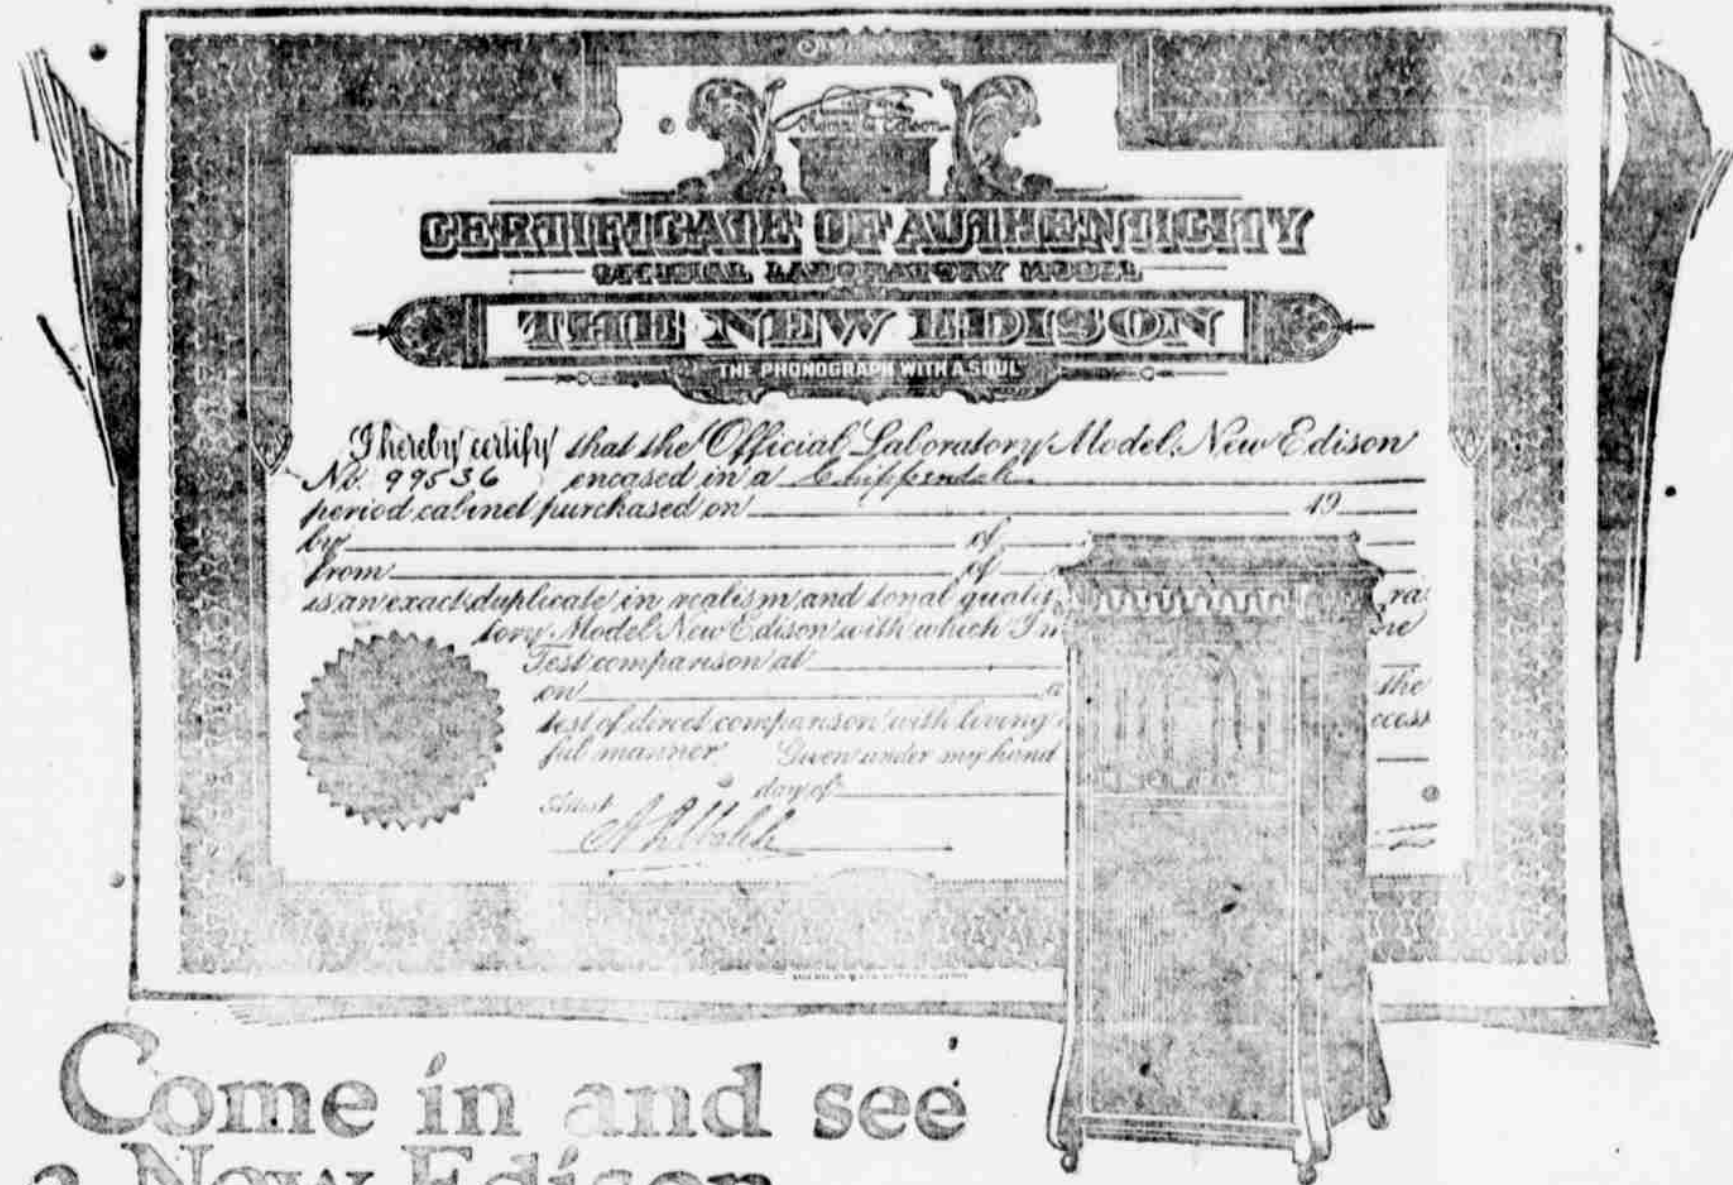 Thomas A Edison
CERTIFICATE OF AUTHENTICITY
OFFICIAL LABORATORY MODEL
THE NEW EDISON
THE PHONOGRAPH WITH A SOUL
I hereby certify that the Official Laboratory Model New Edison
No. 99536 encased in a Chippendale
period cabinet purchased on 19
by of
from of
is an exact duplicate in realism and tonal
tory Model New Edison with which I
Test comparison at
on the
test of direct comparison with living
ful manner. Given under my hand
day of
Attest
Come in and see
a New Edison